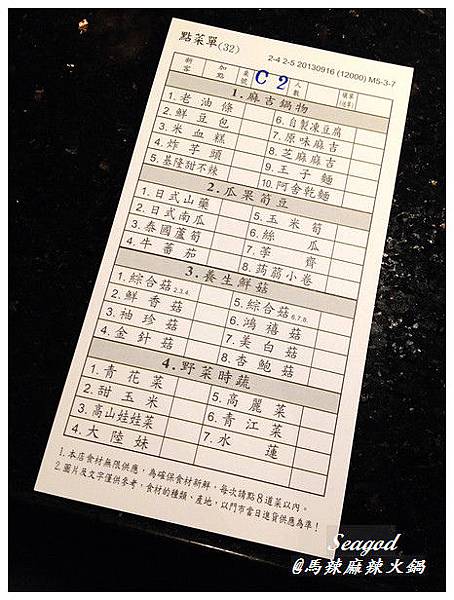 點菜單(32)
2-4 2-5 20130916 (12000) M5-3-7
新客 加點 桌號 C2 人數 填單(送單)
1.麻吉鍋物
1.老油條 6.自製凍豆腐
2.鮮豆包 7.原味麻吉
3.米血糕 8.芝麻麻吉
4.炸芋頭 9.王子麵
5.基隆甜不辣 10.阿舍乾麵
2.瓜果筍豆
1.日式山藥 5.玉米筍
2.日式南瓜 6.絲瓜
3.泰國蘆筍 7.荸薺
4.牛蕃茄 8.蒟蒻小卷
3.養生鮮菇
1.綜合菇2.3.4. 5.綜合菇6.7.8.
2.鮮香菇 6.鴻禧菇
3.袖珍菇 7.美白菇
4.金針菇 8.杏鮑菇
4.野菜時蔬
1.青花菜 5.高麗菜
2.甜玉米 6.青江菜
3.高山娃娃菜 7.水蓮
4.大陸妹
1.本店食材無限供應，為確保食材新鮮，每次請點8道菜以內。
2.圖片及文字僅供參考，食材的種類、產地，以門市當日進貨供應為準！
Seagod
@馬辣麻辣火鍋